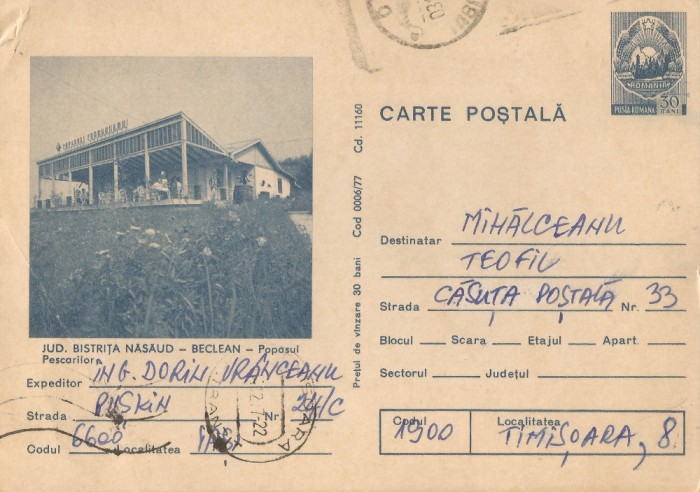 CARTE POȘTALĂ
ROMANIA
POSTA ROMANA 30 BANI
Cod 0006/77 Cd. 11160
Prețul de vînzare 30 bani
JUD. BISTRIȚA NĂSĂUD – BECLEAN – Popasul
Pescarilor
Expeditor ING. DORIN VRÂNCEANU
Strada PUȘKIN Nr 24/C
Codul 6600 Localitatea IAȘI
Destinatar MIHĂLCEANU
TEOFIL
Strada CĂSUȚA POȘTALĂ Nr. 33
Blocul Scara Etajul Apart.
Sectorul Județul
Codul Localitatea
1900 TIMIȘOARA, 8.